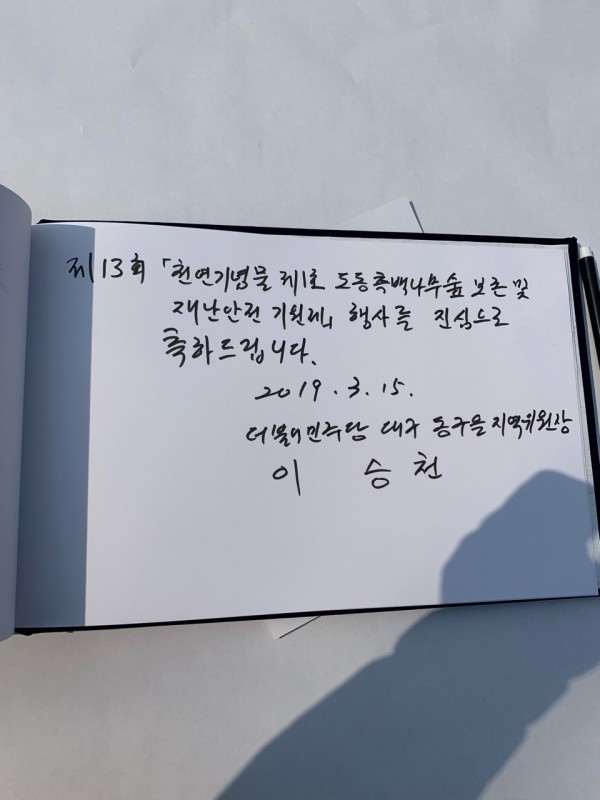 제13회 「천연기념물 제1호 도동측백나무숲 보존 및
재난안전 기원제」 행사를 진심으로
축하드립니다.
2019. 3. 15.
더불어민주당 대구 동구을 지역위원장
이 승 천